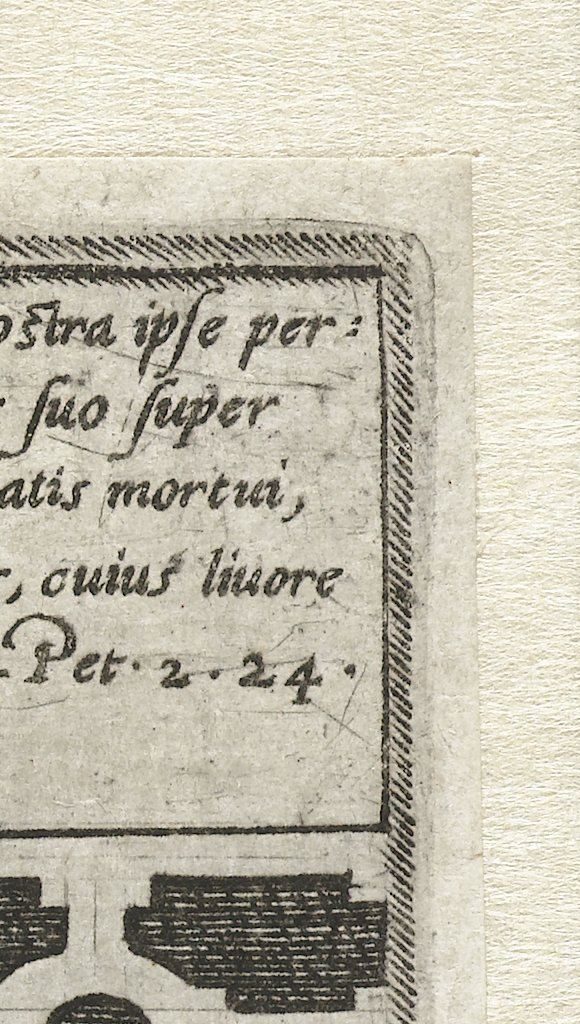 oſtra ipſe per:
ſuo ſuper
atis mortui,
, cuius liuore
Pet. 2. 24.